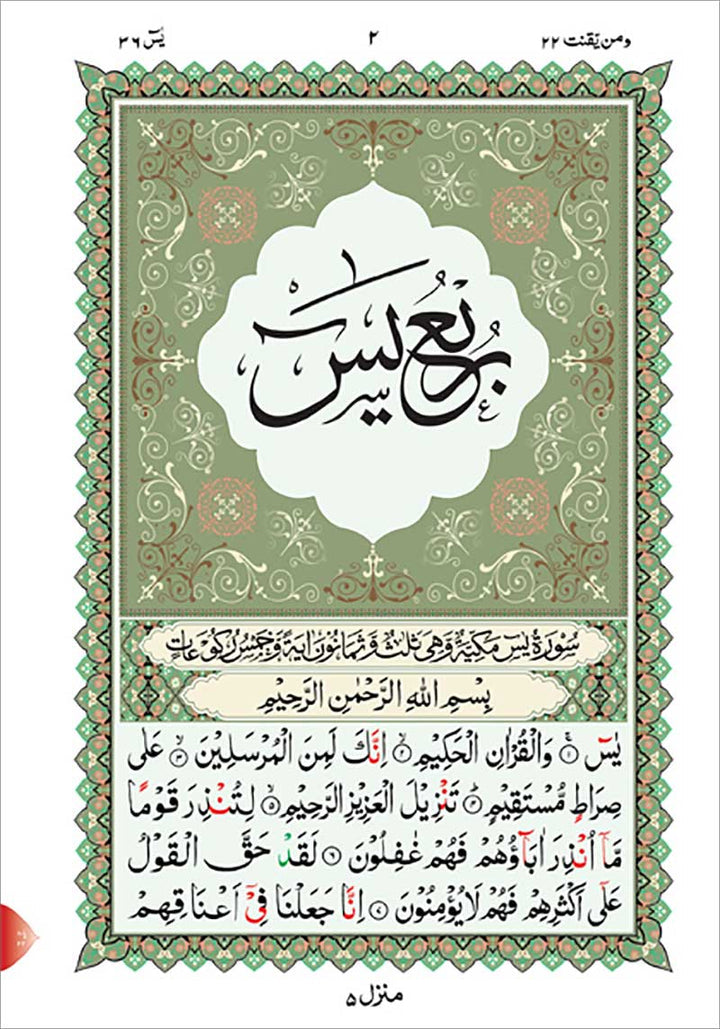 ومن يقنت ٢٢ ٢ يٰسٓ ٣٦
ربع يٰسٓ
سُوْرَةُ يٰسٓ مَكِّيَّةٌ وَّهِيَ ثَلٰثٌ وَّثَمَانُوْنَ اٰيَةً وَّخَمْسُ رُكُوْعَاتٍ
بِسْمِ اللهِ الرَّحْمٰنِ الرَّحِيْمِ
يٰسٓ ۝١ وَالْقُرْاٰنِ الْحَكِيْمِ ۝٢ اِنَّكَ لَمِنَ الْمُرْسَلِيْنَ ۝٣ عَلٰى
صِرَاطٍ مُّسْتَقِيْمٍ ۝٤ تَنْزِيْلَ الْعَزِيْزِ الرَّحِيْمِ ۝٥ لِتُنْذِرَ قَوْمًا
مَّاۤ اُنْذِرَ اٰبَاۤؤُهُمْ فَهُمْ غٰفِلُوْنَ ۝٦ لَقَدْ حَقَّ الْقَوْلُ
عَلٰۤى اَكْثَرِهِمْ فَهُمْ لَا يُؤْمِنُوْنَ ۝٧ اِنَّا جَعَلْنَا فِيْۤ اَعْنَاقِهِمْ
منزل ٥